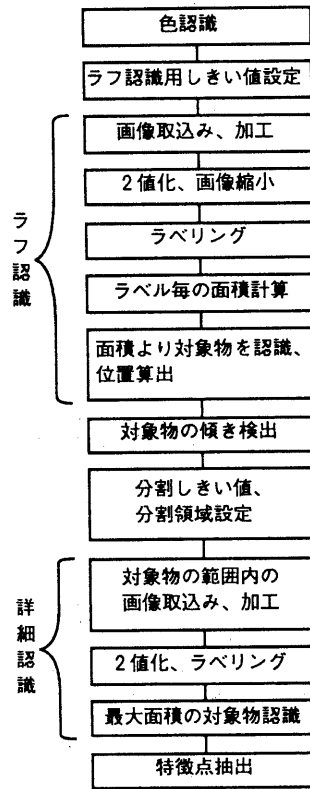 色認識
ラフ認識用しきい値設定
ラフ認識
画像取込み、加工
2値化、画像縮小
ラベリング
ラベル毎の面積計算
面積より対象物を認識、
位置算出
対象物の傾き検出
分割しきい値、
分割領域設定
詳細認識
対象物の範囲内の
画像取込み、加工
2値化、ラベリング
最大面積の対象物認識
特徴点抽出